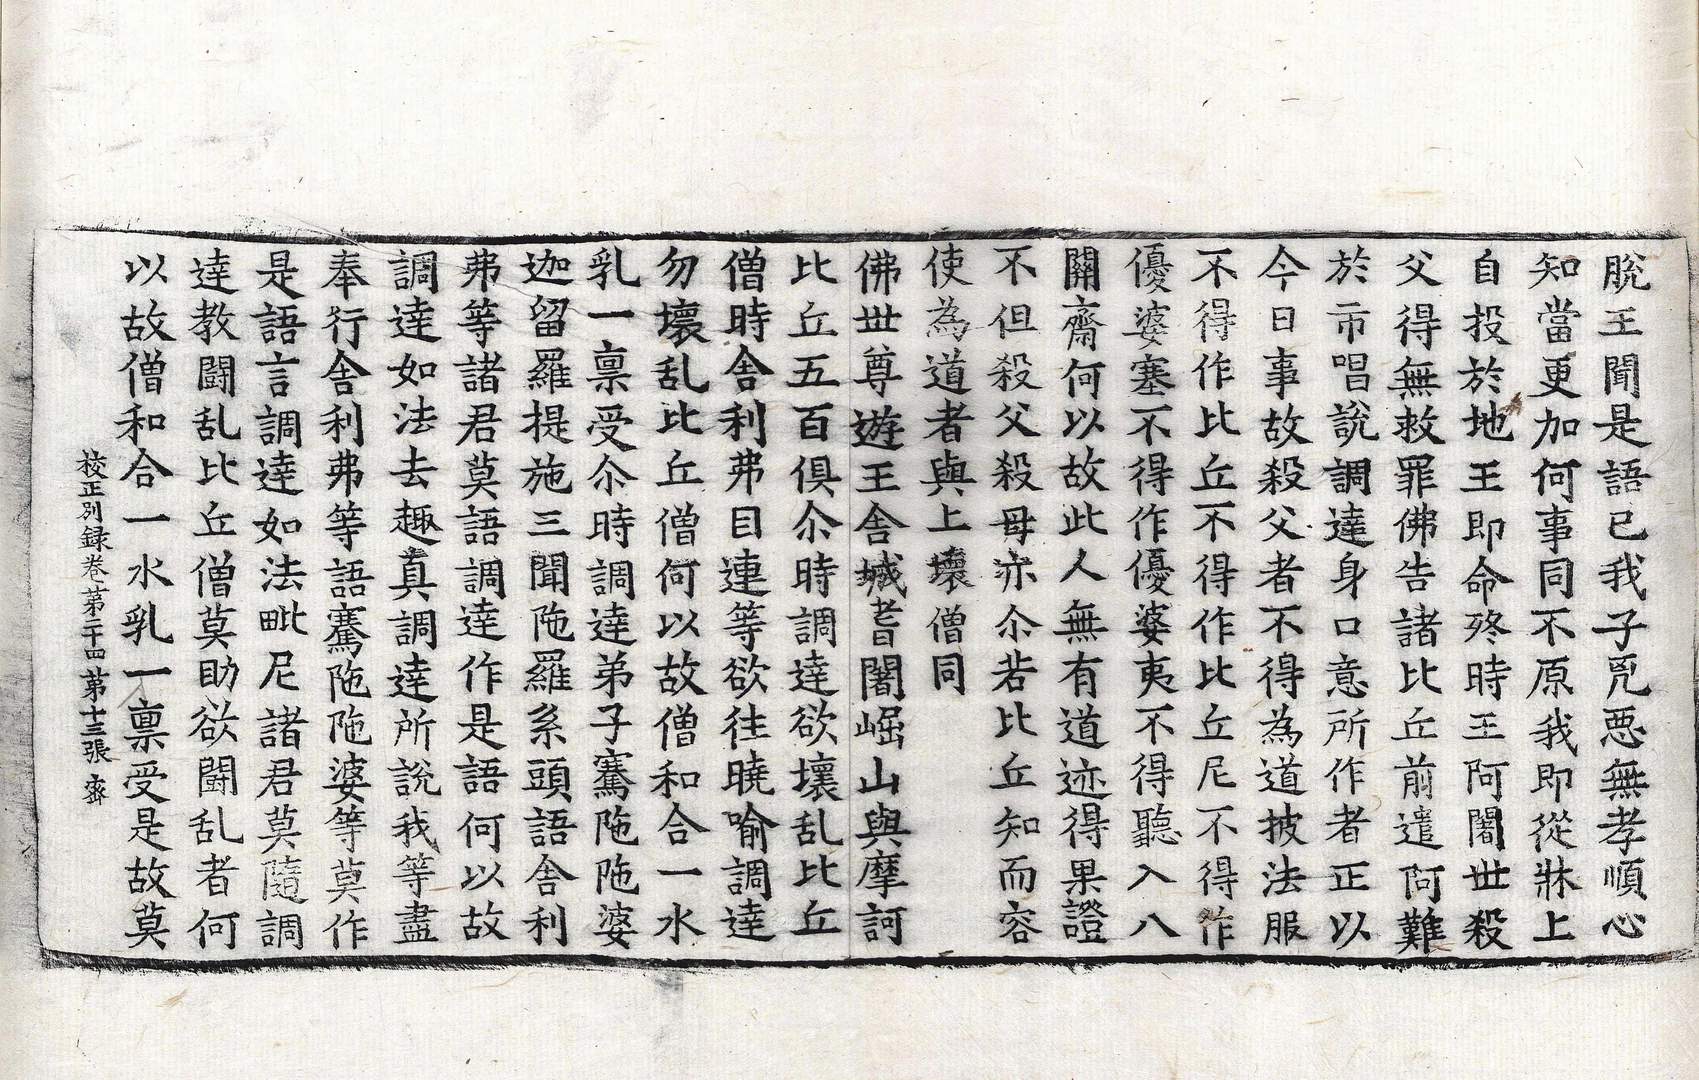 脫王聞是語已我子兇惡無孝順心
知當更加何事同不原我即從牀上
自投於地王即命殁時王阿闍世殺
父得無救罪佛告諸比丘前遣阿難
於市唱說調達身口意所作者正以
今日事故殺父者不得為道披法服
不得作比丘不得作比丘尼不得作
優婆塞不得作優婆夷不得聽入八
關齋何以故此人無有道迹得果證
不但殺父殺母亦尒若比丘知而容
使為道者與上壞僧同
佛世尊遊王舍城耆闍崛山與摩訶
比丘五百俱尒時調達欲壞乱比丘
僧時舍利弗目連等欲往曉喻調達
勿壞乱比丘僧何以故僧和合一水
乳一禀受尒時調達弟子騫陁陁婆
迦留羅提施三聞陁羅系頭語舍利
弗等諸君莫語調達作是語何以故
調達如法去趣真調達所說我等盡
奉行舍利弗等語騫陁陁婆等莫作
是語言調達如法毗尼諸君莫隨調
達教鬪乱比丘僧莫助欲鬪乱者何
以故僧和合一水乳一禀受是故莫
校正别録卷第二十四 第十三張 齋